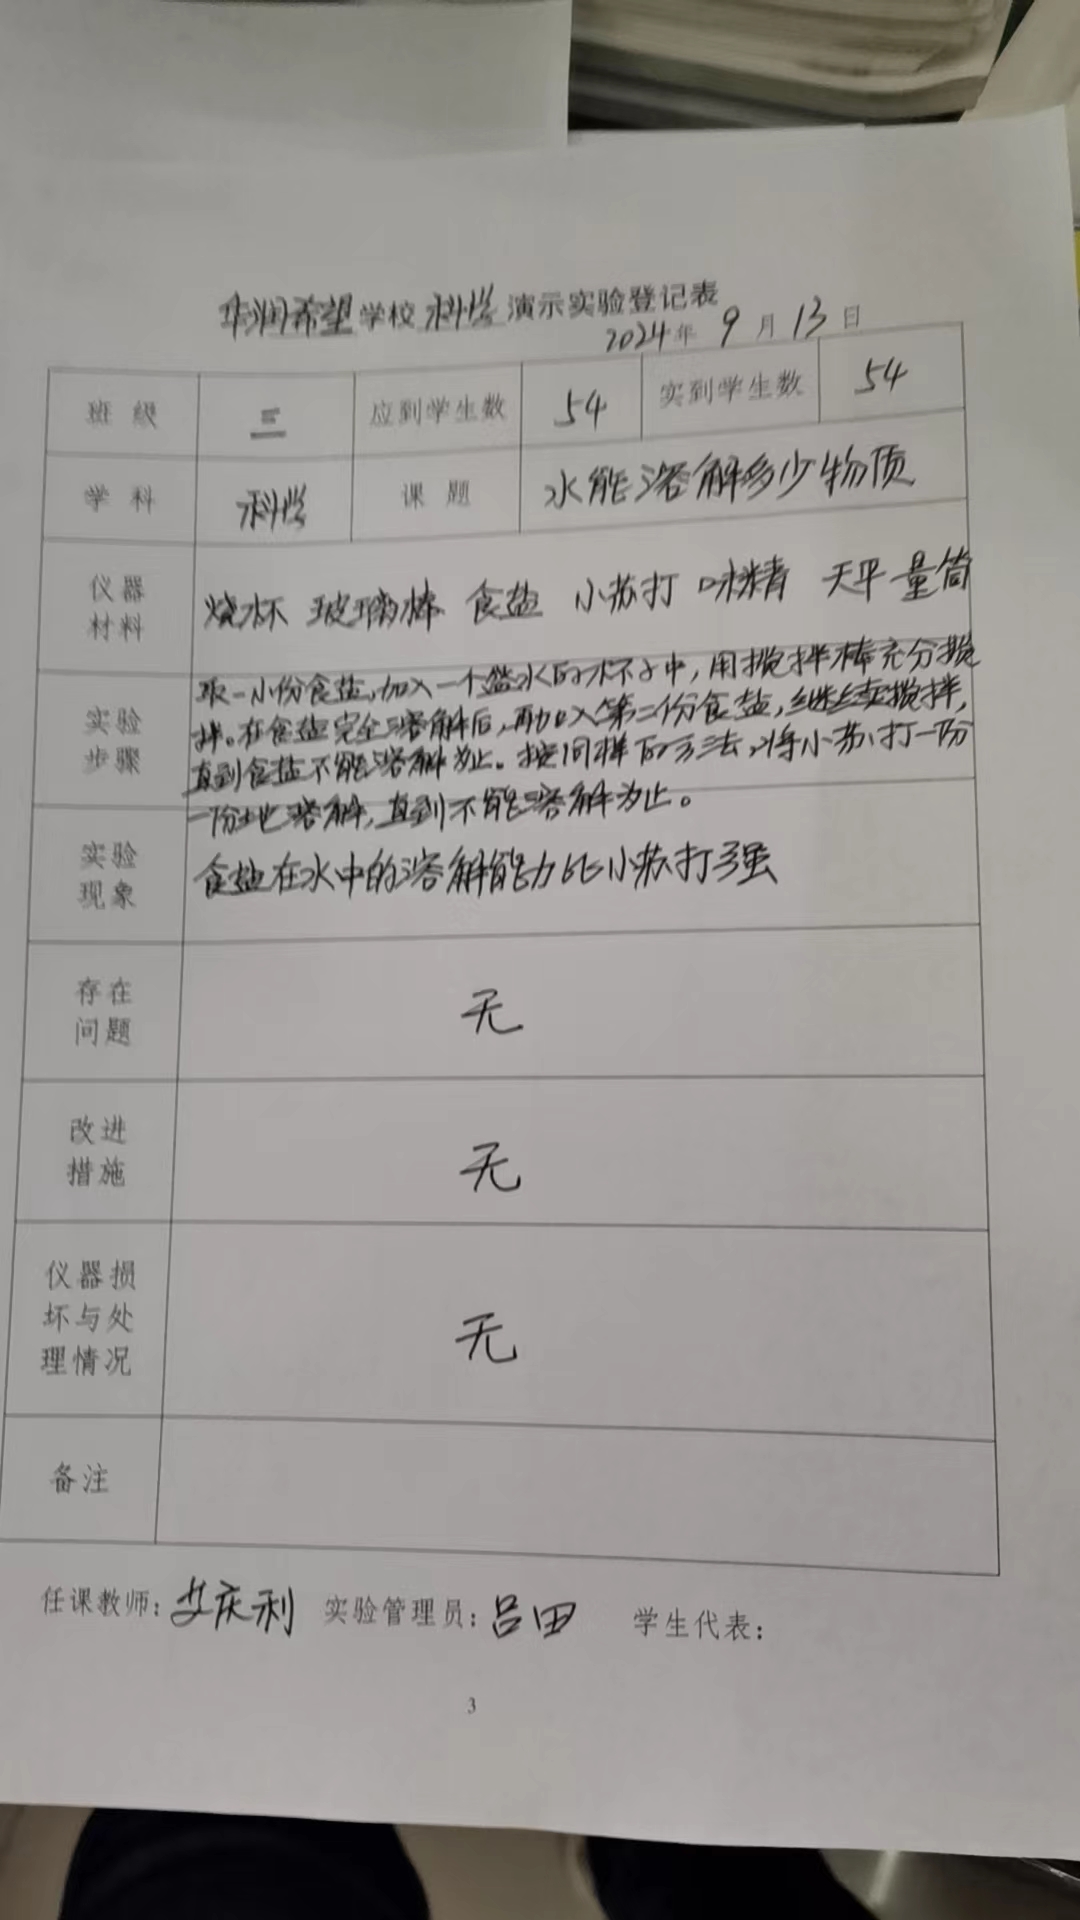 华润希望学校科学演示实验登记表
2024年9月13日
班级 三 应到学生数 54 实到学生数 54
学科 科学 课题 水能溶解多少物质
仪器
材料
烧杯 玻璃棒 食盐 小苏打 味精 天平 量筒
实验
步骤
取一小份食盐,加入一个盛水的杯子中,用搅拌棒充分搅
拌。在食盐完全溶解后,再加入第二份食盐,继续搅拌,
直到食盐不能溶解为止。按同样的方法,将小苏打一份
一份地溶解,直到不能溶解为止。
实验
现象
食盐在水中的溶解能力比小苏打强
存在
问题
无
改进
措施
无
仪器损
坏与处
理情况
无
备注
任课教师:艾庆利 实验管理员:吕田 学生代表:
3